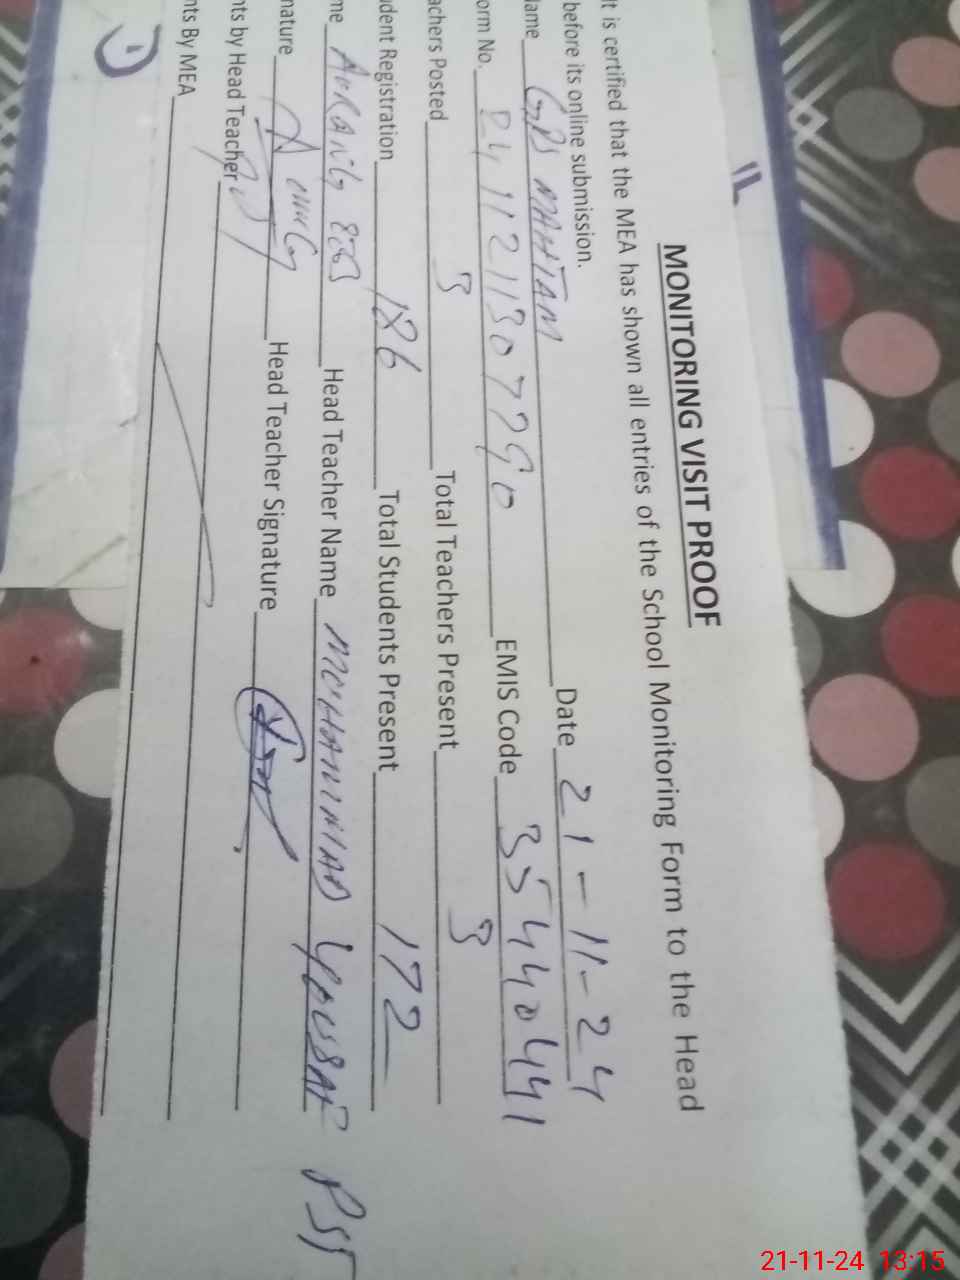 11
MONITORING VISIT PROOF
It is certified that the MEA has shown all entries of the School Monitoring Form to the Head
before its online submission.
lame GPS MAHTAM Date 21-11-24
orm No. 2411211307790 EMIS Code 35440441
achers Posted 3 Total Teachers Present 3
dent Registration 186 Total Students Present 172
me AURANG Head Teacher Name MOHAMMAD YOUSAF PST
nature Head Teacher Signature
nts by Head Teacher
nts By MEA
21-11-24 13:15